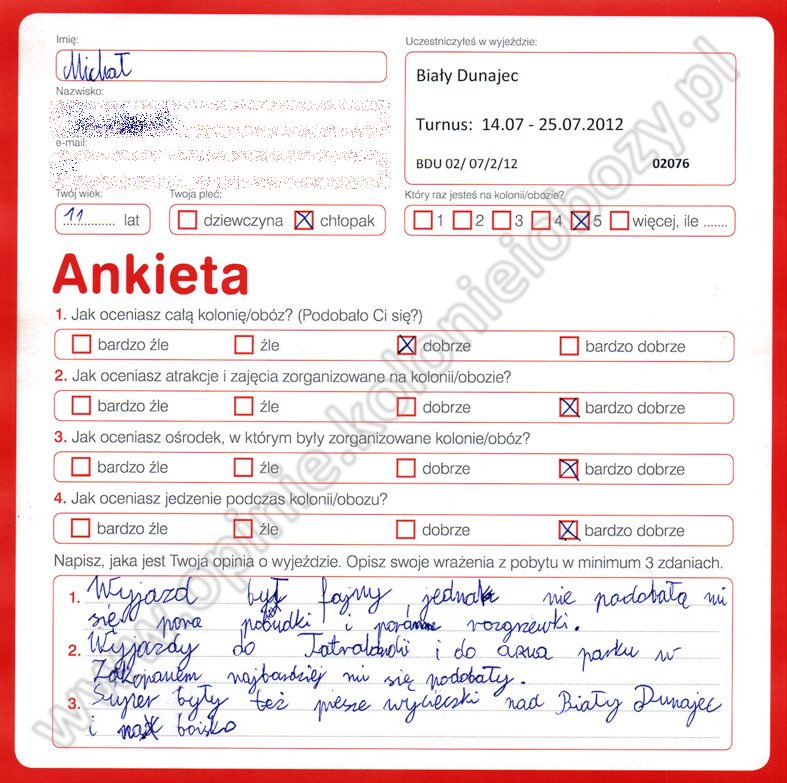 Imię:
Michał
Uczestniczyłeś w wyjeździe:
Biały Dunajec
Turnus: 14.07 - 25.07.2012
BDU 02/ 07/2/12 02076
Nazwisko:
e-mail:
Twój wiek:
11 lat
Twoja płeć:
dziewczyna chłopak
Który raz jesteś na kolonii/obozie?
1 2 3 4 5 więcej, ile .......
Ankieta
1. Jak oceniasz całą kolonię/obóz? (Podobało Ci się?)
bardzo źle źle dobrze bardzo dobrze
2. Jak oceniasz atrakcje i zajęcia zorganizowane na kolonii/obozie?
bardzo źle źle dobrze bardzo dobrze
3. Jak oceniasz ośrodek, w którym były zorganizowane kolonie/obóz?
bardzo źle źle dobrze bardzo dobrze
4. Jak oceniasz jedzenie podczas kolonii/obozu?
bardzo źle źle dobrze bardzo dobrze
Napisz, jaka jest Twoja opinia o wyjeździe. Opisz swoje wrażenia z pobytu w minimum 3 zdaniach.
1. Wyjazd był fajny, jednak nie podobałą mi
się pora pobudki i poranne rozgrzewki.
2. Wyjazdy do Tatralandii i do aqua parku w
Zakopanem najbardziej mi się podobały.
3. Super były też piesze wycieczki nad Biały Dunajec
i boisko
www.opinie.kolonieiobozy.pl